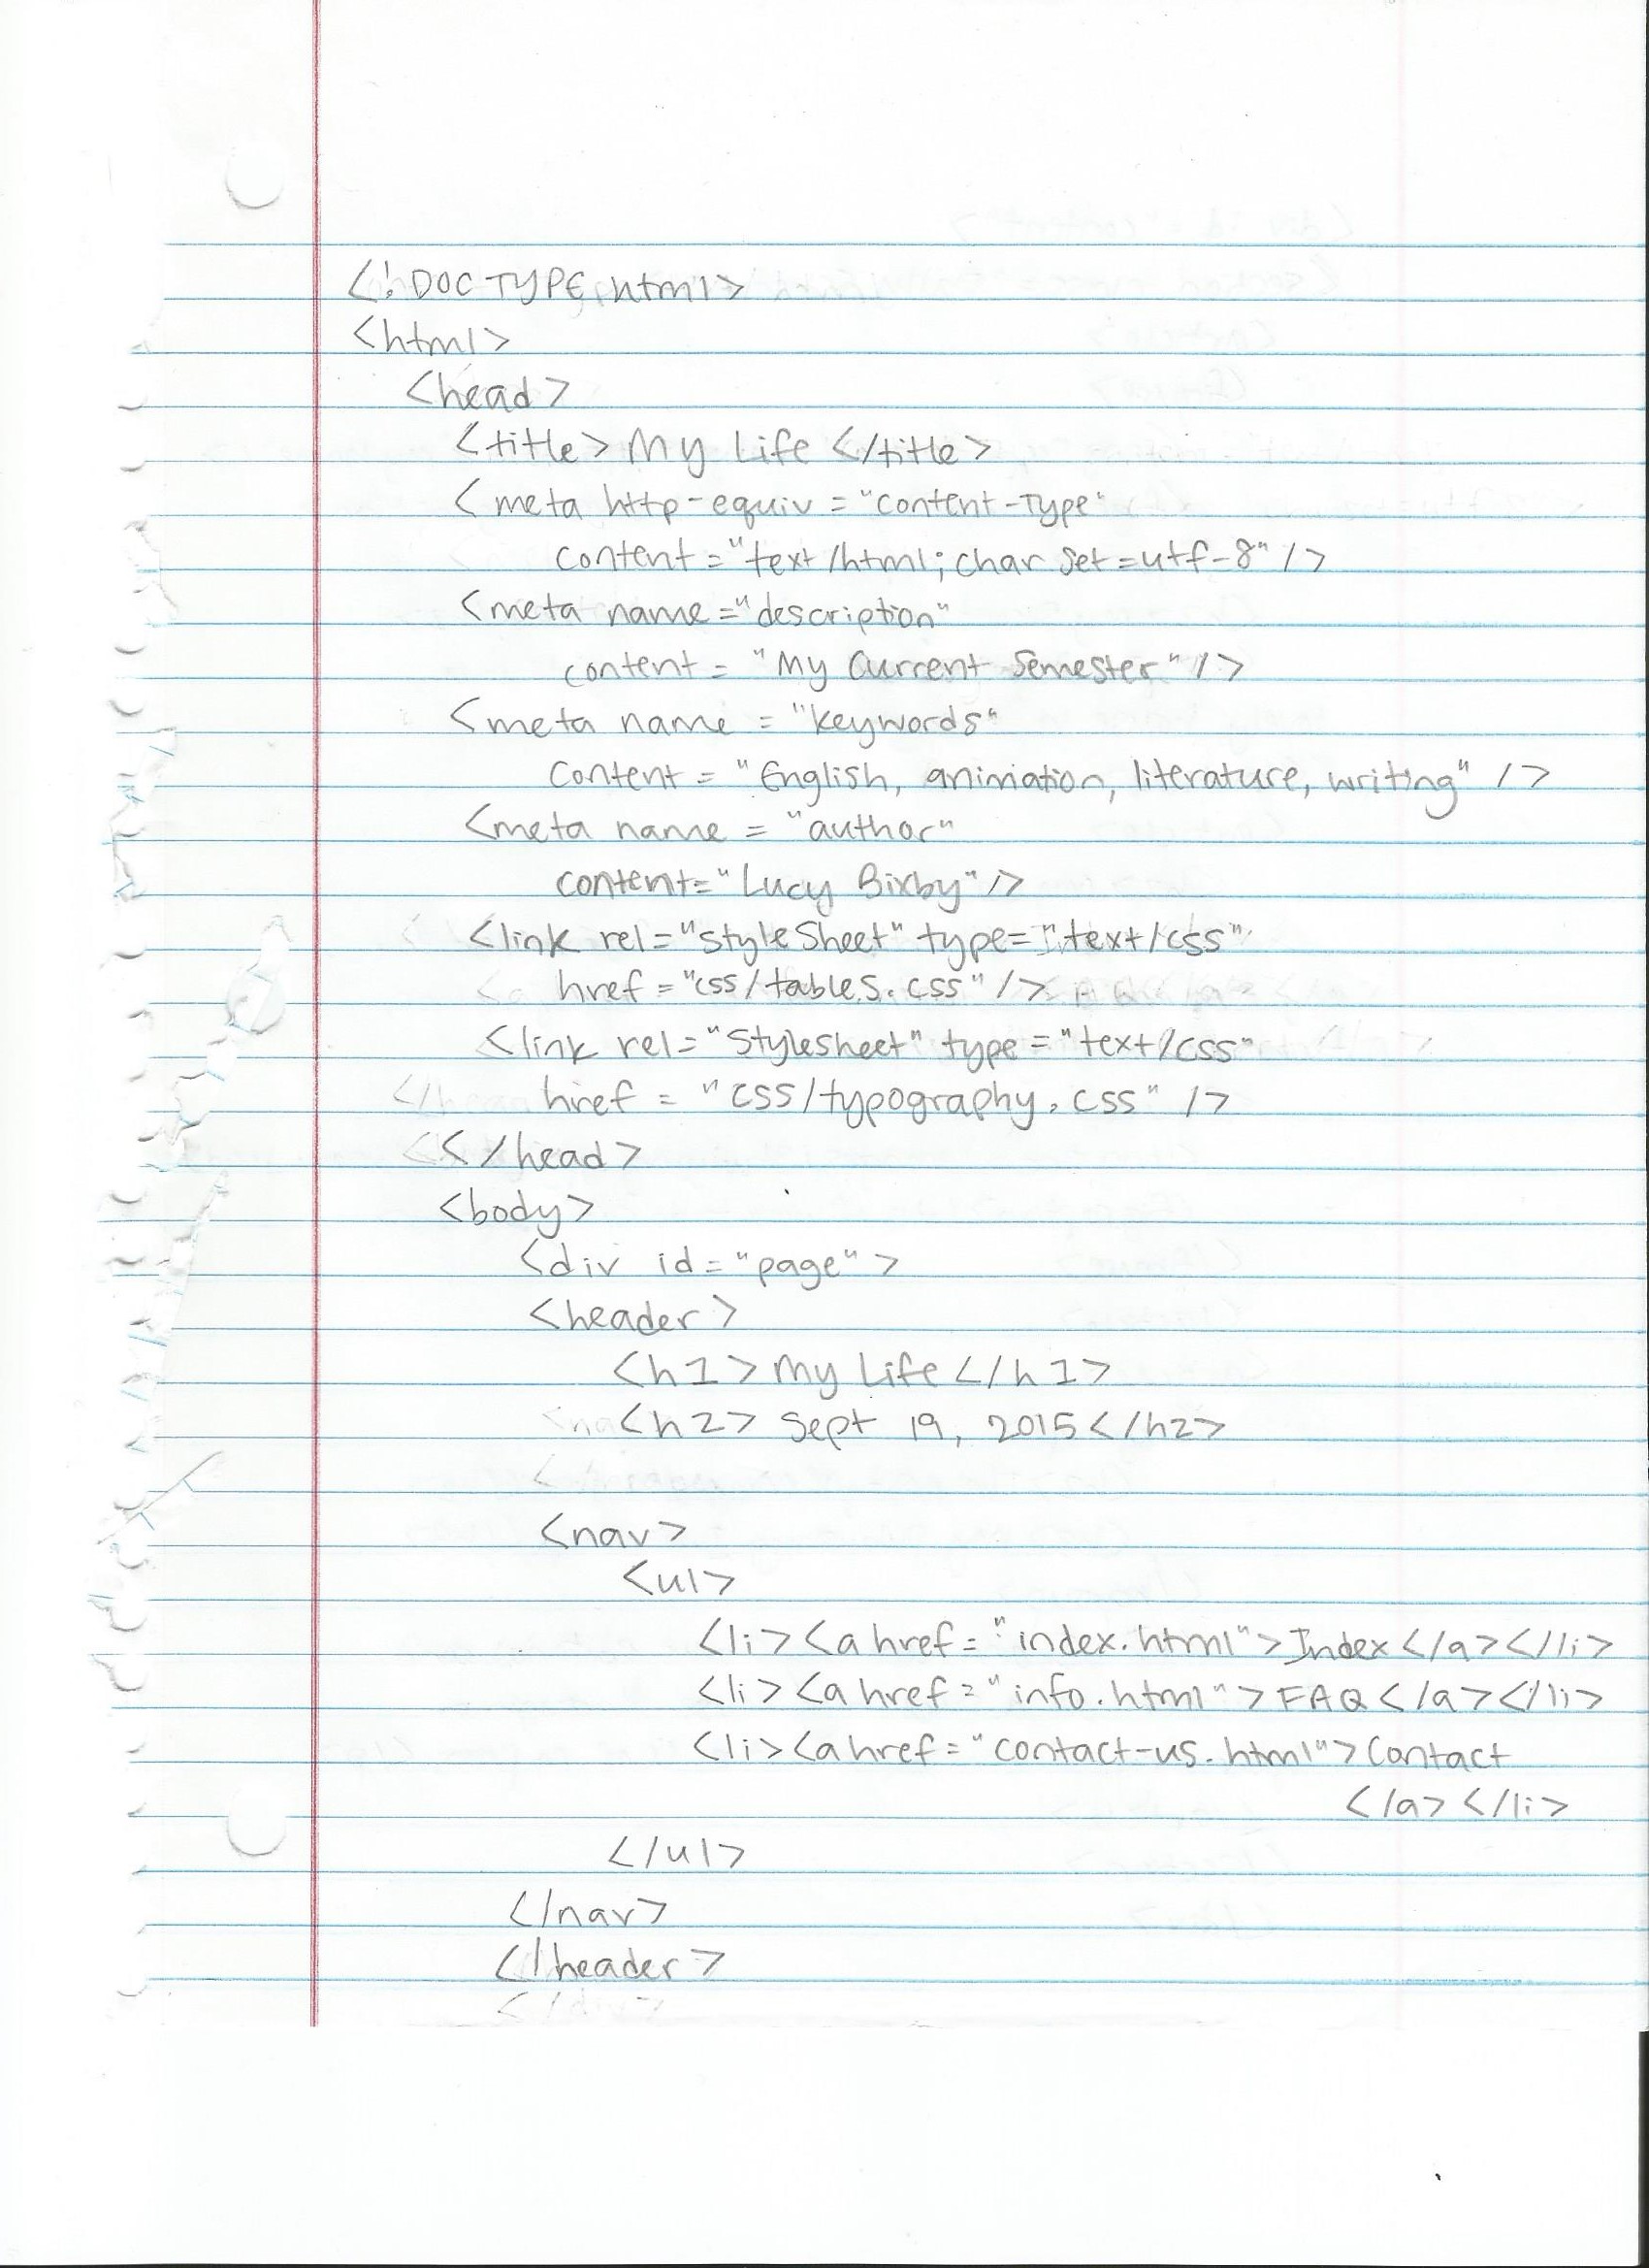 <!DOCTYPE html>
<html>
<head>
<title> My Life </title>
<meta http-equiv = "content-Type"
content = "text/html; char set=utf-8" />
<meta name="description"
content = "My Current Semester" />
<meta name = "keywords"
content = "English, animation, literature, writing" />
<meta name = "author"
content="Lucy Bixby" />
<link rel="styleSheet" type="text/css"
href="css/tables.css" />
<link rel="Stylesheet" type="text/css"
href = "css/typography.css" />
</head>
<body>
<div id="page">
<header>
<h1> My Life </h1>
<h2> Sept 19, 2015</h2>
<nav>
<ul>
<li><a href="index.html">Index</a></li>
<li><a href="info.html">FAQ</a></li>
<li><a href="contact-us.html">Contact
</a></li>
</ul>
</nav>
</header>